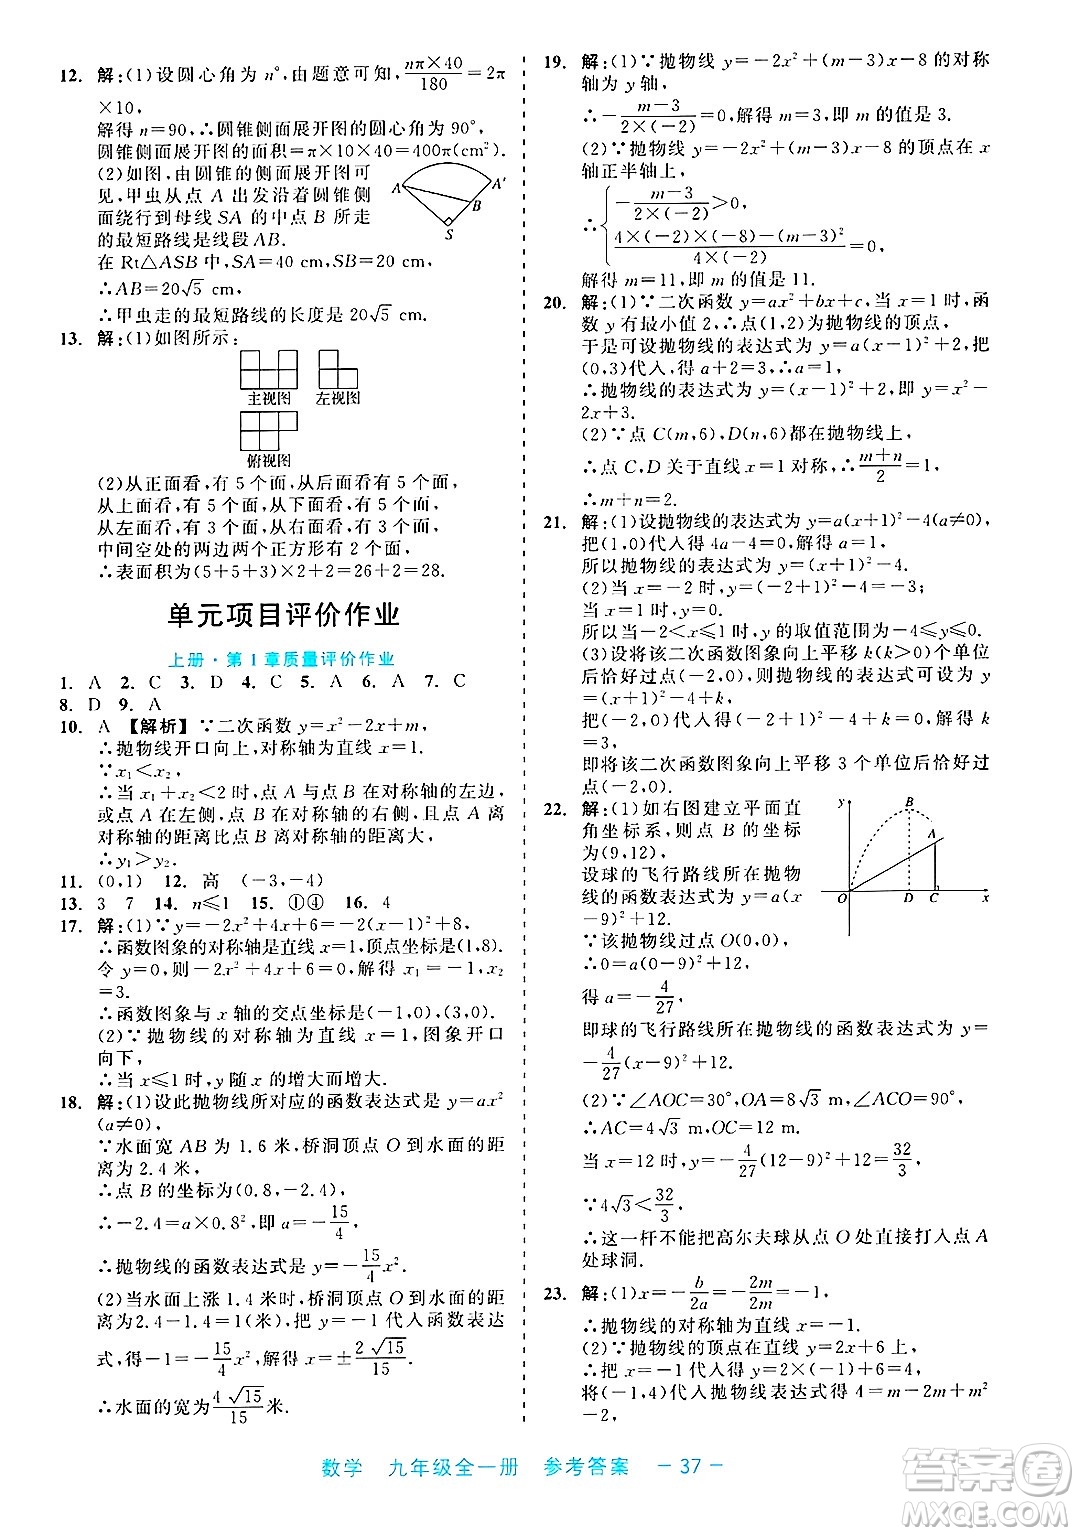 12. 解:(1)设圆心角为 n°,由题意可知,nπ×40/180=2π
×10,
解得 n=90,∴圆锥侧面展开图的圆心角为 90°,
圆锥侧面展开图的面积=π×10×40=400π(cm²).
(2)如图,由圆锥的侧面展开图可
见,甲虫从点 A 出发沿着圆锥侧
面绕行到母线 SA 的中点 B 所走
的最短路线是线段 AB.
A A′ B S
在 Rt△ASB 中,SA=40 cm,SB=20 cm,
∴AB=20√5 cm.
∴甲虫走的最短路线的长度是 20√5 cm.
13. 解:(1)如图所示:
主视图 左视图
俯视图
(2)从正面看,有 5 个面,从后面看,有 5 个面,
从上面看,有 5 个面,从下面看,有 5 个面,
从左面看,有 3 个面,从右面看,有 3 个面,
中间空处的两边两个正方形有 2 个面,
∴表面积为(5+5+3)×2+2=26+2=28.
单元项目评价作业
上册·第 1 章质量评价作业
1. A 2. C 3. D 4. C 5. A 6. A 7. C
8. D 9. A
10. A 【解析】∵二次函数 y=x²-2x+m,
∴抛物线开口向上,对称轴为直线 x=1.
∵x₁<x₂,
∴当 x₁+x₂<2 时,点 A 与点 B 在对称轴的左边,
或点 A 在左侧,点 B 在对称轴的右侧,且点 A 离
对称轴的距离比点 B 离对称轴的距离大,
∴y₁>y₂.
11. (0,1) 12. 高 (-3,-4)
13. 3 7 14. n≤1 15. ①④ 16. 4
17. 解:(1)∵y=-2x²+4x+6=-2(x-1)²+8,
∴函数图象的对称轴是直线 x=1,顶点坐标是(1,8).
令 y=0,则-2x²+4x+6=0,解得 x₁=-1,x₂
=3.
∴函数图象与 x 轴的交点坐标是(-1,0),(3,0).
(2)∵抛物线的对称轴为直线 x=1,图象开口
向下,
∴当 x≤1 时,y 随 x 的增大而增大.
18. 解:(1)设此抛物线所对应的函数表达式是 y=ax²
(a≠0),
∵水面宽 AB 为 1.6 米,桥洞顶点 O 到水面的距
离为 2.4 米,
∴点 B 的坐标为(0.8,-2.4),
∴-2.4=a×0.8²,即 a=-15/4,
∴抛物线的函数表达式是 y=-15/4x².
(2)当水面上涨 1.4 米时,桥洞顶点 O 到水面的距离
为 2.4-1.4=1(米),把 y=-1 代入函数表达
式,得-1=-15/4x²,解得 x=±2√15/15.
∴水面的宽为4√15/15米.
19. 解:(1)∵抛物线 y=-2x²+(m-3)x-8 的对称
轴为 y 轴,
∴-m-3/2×(-2)=0,解得 m=3,即 m 的值是 3.
(2)∵抛物线 y=-2x²+(m-3)x-8 的顶点在 x
轴正半轴上,
∴{-m-3/2×(-2)>0,
4×(-2)×(-8)-(m-3)²/4×(-2)=0,
解得 m=11,即 m 的值是 11.
20. 解:(1)∵二次函数 y=ax²+bx+c,当 x=1 时,函
数 y 有最小值 2,∴点(1,2)为抛物线的顶点,
于是可设抛物线的表达式为 y=a(x-1)²+2,把
(0,3)代入,得 a+2=3,∴a=1,
∴抛物线的表达式为 y=(x-1)²+2,即 y=x²-
2x+3.
(2)∵点 C(m,6),D(n,6)都在抛物线上,
∴点 C,D 关于直线 x=1 对称,∴m+n/2=1,
∴m+n=2.
21. 解:(1)设抛物线的表达式为 y=a(x+1)²-4(a≠0),
把(1,0)代入得 4a-4=0,解得 a=1,
所以抛物线的表达式为 y=(x+1)²-4.
(2)当 x=-2 时,y=(-2+1)²-4=-3;
当 x=1 时,y=0.
所以当-2<x≤1 时,y 的取值范围为-4≤y≤0.
(3)设将该二次函数图象向上平移 k(k>0)个单
位后恰好过点(-2,0),则平移后的表达式为 y=
(x+1)²-4+k,
把(-2,0)代入得(-2+1)²-4+k=0,解得 k
=3,
即将该二次函数图象向上平移 3 个单位后恰好过
点(-2,0).
22. 解:(1)如右图建立平面直
角坐标系,则点 B 的坐标
为(9,12),
设球的飞行路线所在抛物
线的函数表达式为 y=a(x
-9)²+12.
y B A O D C x
∵该抛物线过点 O(0,0),
∴0=a(0-9)²+12,
得 a=-4/27,
即球的飞行路线所在抛物线的函数表达式为 y=
-4/27(x-9)²+12.
(2)∵∠AOC=30°,OA=8√3 m,∠ACO=90°,
∴AC=4√3 m,OC=12 m.
当 x=12 时,y=-4/27(12-9)²+12=32/3,
∵4√3<32/3,
∴这一杆不能把高尔夫球从点 O 处直接打入点 A
处球洞.
23. 解:(1)x=-b/2a=-2m/2m=-1,
∴抛物线的对称轴为直线 x=-1.
(2)∵抛物线的顶点在直线 y=2x+6 上,
∴把 x=-1 代入,得 y=2×(-1)+6=4,
将(-1,4)代入抛物线表达式得 4=m-2m+m²
-2,
数学 九年级全一册 参考答案 -37-
答案圈
MXQE.COM